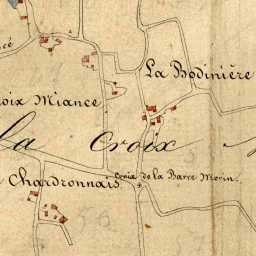 cé
La Bodinière
oix Miance
la Croix
Chardronnais
Croix de la Barre Morin.
56.